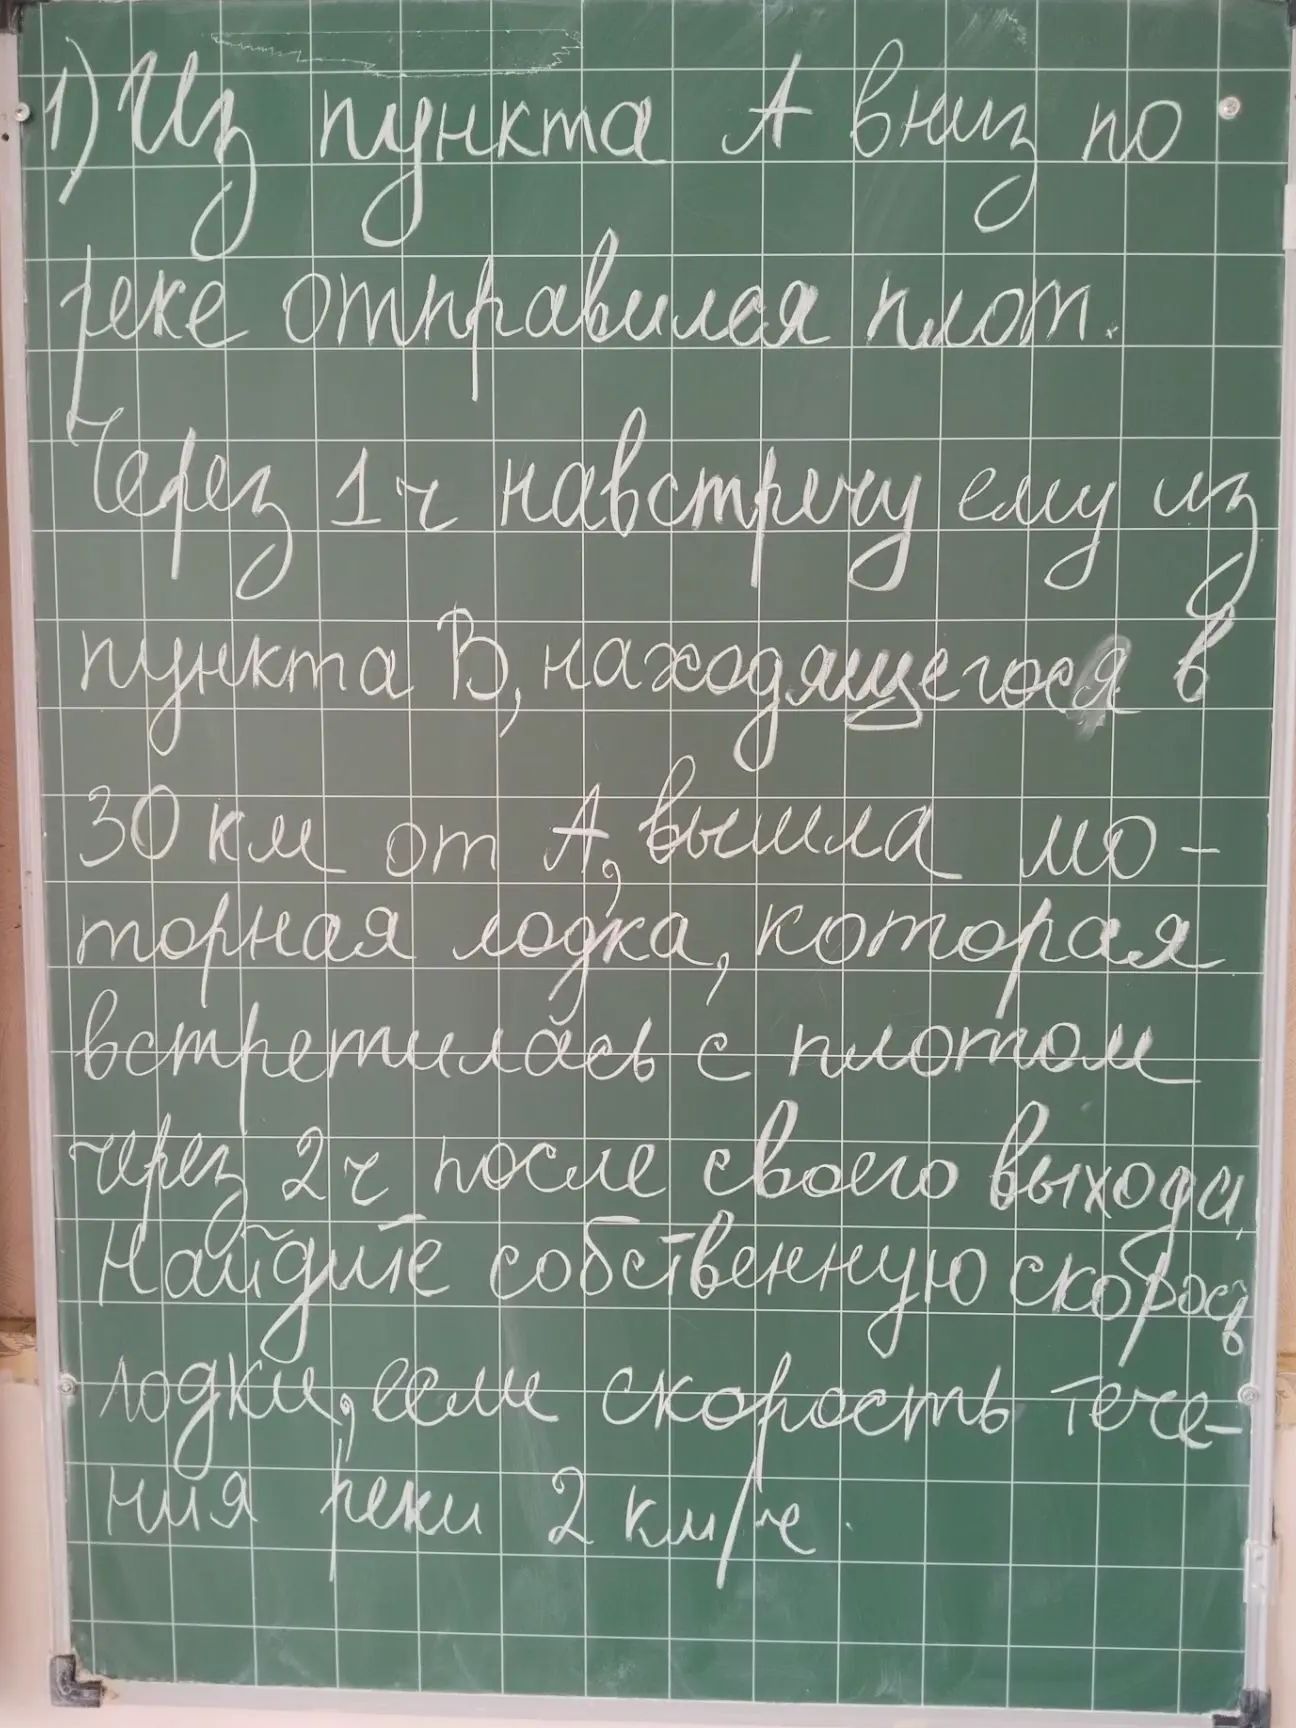 1) Из пункта А вниз по
реке отправился плот.
Через 1 ч навстречу ему из
пункта В, находящегося в
30 км от А, вышла мо-
торная лодка, которая
встретилась с плотом
через 2 ч после своего выхода.
Найдите собственную скорость
лодки, если скорость тече-
ния реки 2 км/ч.